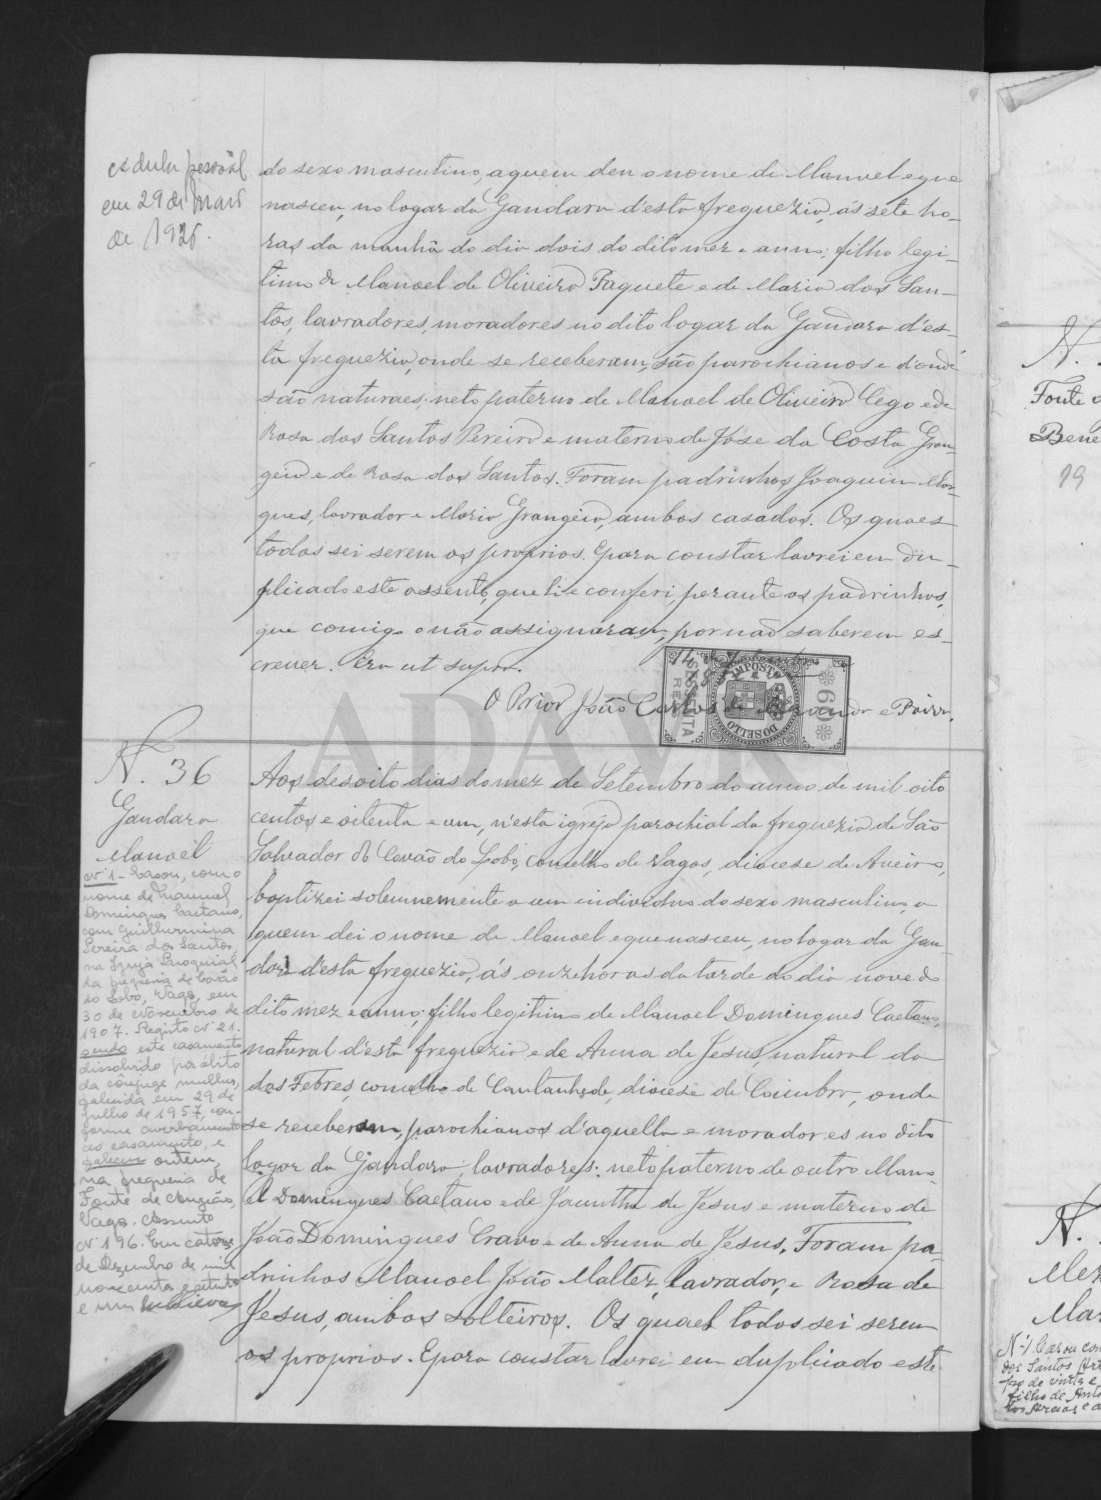 cedula pessoal
em 29 de Maio
de 192
do sexo masculino, a quem dei o nome de Manoel e que
nasceu, no logar da Gandara d'esta freguezia, ás sete ho-
ras da manhã do dia dois do dito mez e anno; filho legi-
timo de Manoel de Oliveira Paquete e de Maria dos San-
tos, lavradores, moradores no dito logar da Gandara d'es-
ta freguezia, onde se receberam, são parochianos e d'onde
são naturaes; neto paterno de Manoel de Oliveira Cego e de
Rosa dos Santos Pereira e materno de José da Costa Gran-
geia e de Rosa dos Santos. Foram padrinhos Joaquim Mar-
ques, lavrador e Maria Grangeia, ambos casados. Os quaes
todos sei serem os proprios. E para constar lavrei em du-
plicado este assento, que li e conferi, perante os padrinhos,
que comigo o não assignaram, por não saberem es-
crever. Era ut supra.
O Prior João Carlos
IMPOSTO
DO SELLO
SESSENTA
REIS
60
ADAVR
N. 36
Gandara
Manoel
Nº 1 - Casou, com o
nome de Manuel
Domingues Caetano,
com Guilhermina
Pereira dos Santos,
na Igreja Paroquial
da freguesia de Covão
do Lobo, Vagos, em
30 de Novembro de
1907. Registo nº 21.
sendo este casamento
dissolvido por óbito
da cônjuge mulher,
falecida em 29 de
Julho de 1957, con-
forme averbamento
ao casamento, e
faleceu ontem,
na freguesia de
Fonte de Angeão,
Vagos. Assento
Nº 196. Em catorze
de Dezembro de mil
novecentos e setenta
e um
Aos desoito dias do mez de Setembro do anno de mil oito
centos e oitenta e um, n'esta igreja parochial da freguezia de São
Salvador do Covão do Lobo, concelho de Vagos, diocese de Aveiro,
baptizei solemnemente a um individuo do sexo masculino, a
quem dei o nome de Manoel e que nasceu, no logar da Gan-
dara d'esta freguezia, ás onze horas da tarde do dia nove do
dito mez e anno; filho legitimo de Manoel Domingues Caetano,
natural d'esta freguezia e de Anna de Jesus, natural da
das Febres, concelho de Cantanhede, diocese de Coimbra, onde
se receberam, parochianos d'aquella e moradores no dito
logar da Gandara, lavradores; neto paterno de outro Mano-
el Domingues Caetano e de Jacintha de Jesus e materno de
João Domingues Cravo e de Anna de Jesus. Foram pa-
drinhos Manoel João Maltez, lavrador, e Rosa de
Jesus, ambos solteiros. Os quaes todos sei serem
os proprios. E para constar lavrei em duplicado este
N.
Fonte
Bene
19
N.
Mez
Mar
Nº 1 Casou com
dos Santos